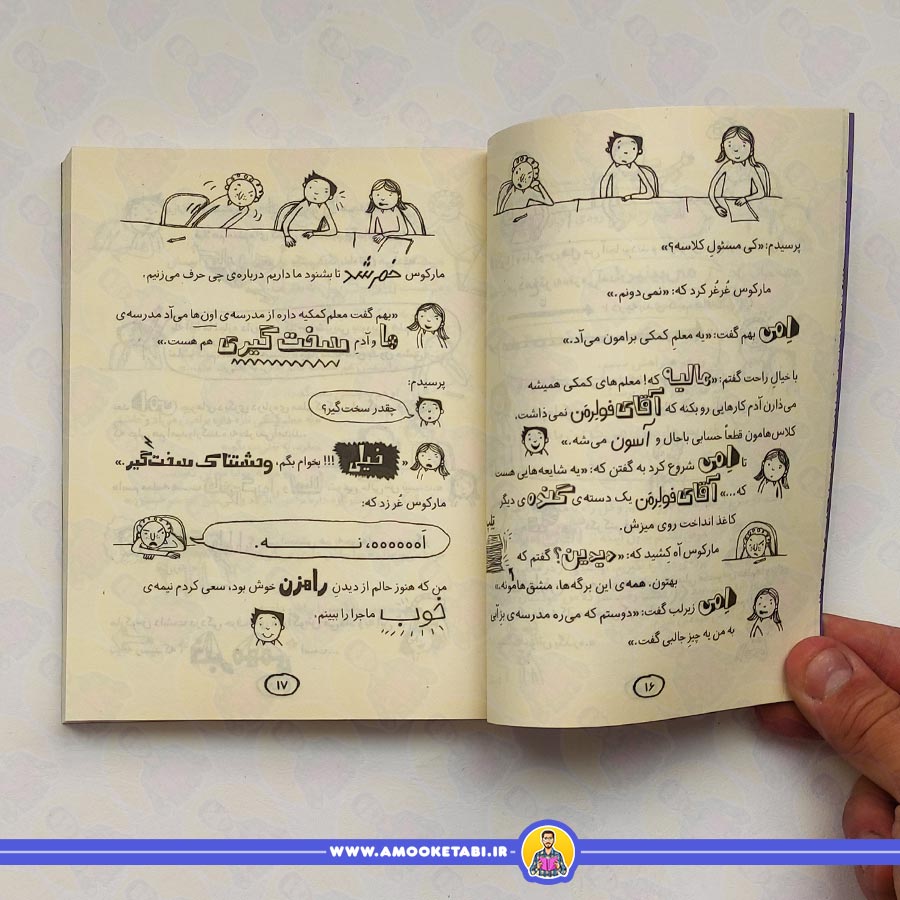 پرسیدم: «کی مسئولِ کلاسه؟»
مارکوس غُرغُر کرد که: «نمی‌دونم.»
اِمی بهم گفت: «یه معلمِ کمکی برامون می‌آد.»
با خیالِ راحت گفتم: «عالیه که! معلم‌های کمکی همیشه
می‌ذارن آدم کارهایی رو بکنه که آقای فولِرمَن نمی‌ذاشت.
کلاس‌هامون قطعاً حسابی باحال و آسون می‌شه.»
تا اِمی شروع کرد به گفتن که: «یه شایعه‌هایی هست
که...» آقای فولِرمَن یک دسته‌ی گُنده‌ی دیگر
کاغذ انداخت روی میزش.
مارکوس آه کِشید که: «دیدین؟ گفتم که
بهتون. همه‌ی این برگه‌ها، مشق‌هامونه.»
اِمی زیرلب گفت: «دوستم که می‌ره مدرسه‌ی بِزِلّی
به من یه چیزِ جالبی گفت.»
۱۶
مارکوس خم شد تا بشنود ما داریم درباره‌ی چی حرف می‌زنیم.
«بهم گفت معلم‌کمکیه داره از مدرسه‌ی اون‌ها می‌آد مدرسه‌ی
ما و آدمِ سخت‌گیری هم هست.»
پرسیدم:
چقدر سخت‌گیر؟
«خیلی!!! بخوام بگم، وحشتناک سخت‌گیر.»
مارکوس غُر زد که:
اَه‌ه‌ه‌ه‌ه‌ه، نـــــــه.
من که هنوز حالم از دیدن راهزن خوش بود، سعی کردم نیمه‌ی
خوب ماجرا را ببینم.
۱۷
WWW.AMOOKETABI.IR